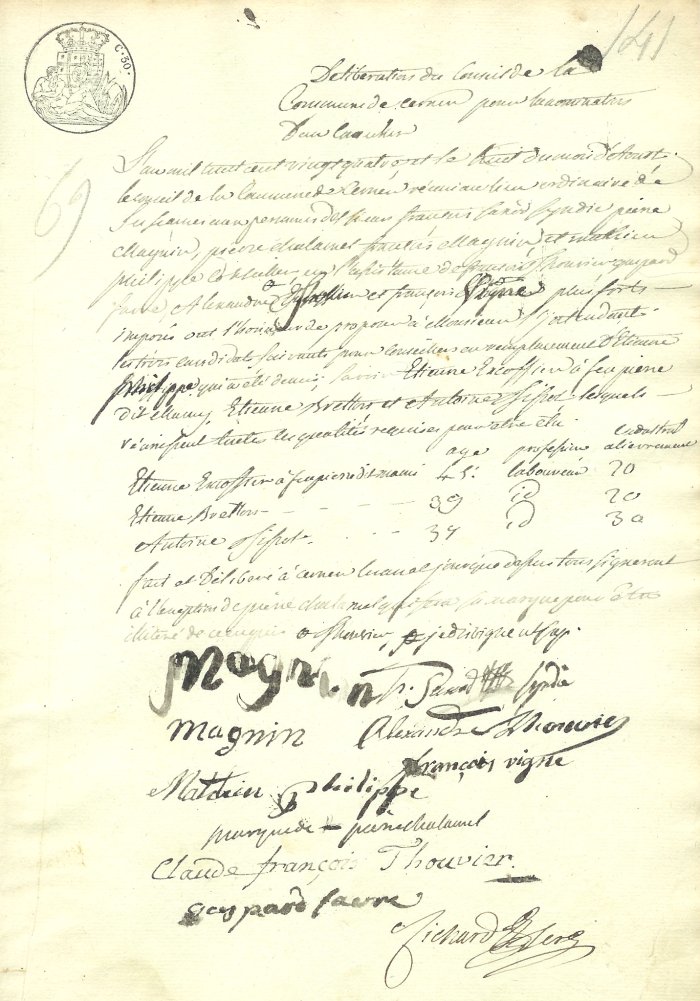 C. 50.
141
Deliberation du Conseil de la
Commune de cernex pour la nomination
D'un
69
L'an mil huit cent vingt quatre et le huit du mois d'aoust
le conseil de la Commune de Cernex réuni au lieu ordinaire de
ses séances aux personnes des sieurs françois syndic pierre
Magnin, pierre chalamel françois Magnin et mathieu
philippe Conseillers, en l'assistance de françois Thouvier gaspard
favre, Alexandre Thouvier et françois Vigne plus forts
imposés ont l'honneur de proposer à Monsieur l'jntendant
les trois candidats suivants pour conseiller en remplacement D'Etienne
philippe qui a été demis, savoir Etienne Excoffier à feu pierre
dit mamy, Etienne Bretton et Antoine lesquels
réunissent toutes les qualités requises pour être élu
age profession cadastral
alievrement
Etienne Excoffier à feu pierre dit mami 45. laboureur 20
Etienne Bretton - - - - 39 id 20
Antoine - - - 37 id 30
fait et Délibéré à cernex l'an et jour que dessus tous signeront
à l'exception de pierre chalamel qui fera sa marque pour être
illitéré de ce enquis
Magnin
syndic
magnin Alexandre Thouvier
françois vigne
Mathieu philippe
marque de + pierre chalamel
Claude françois Thouvier.
gaspard favre